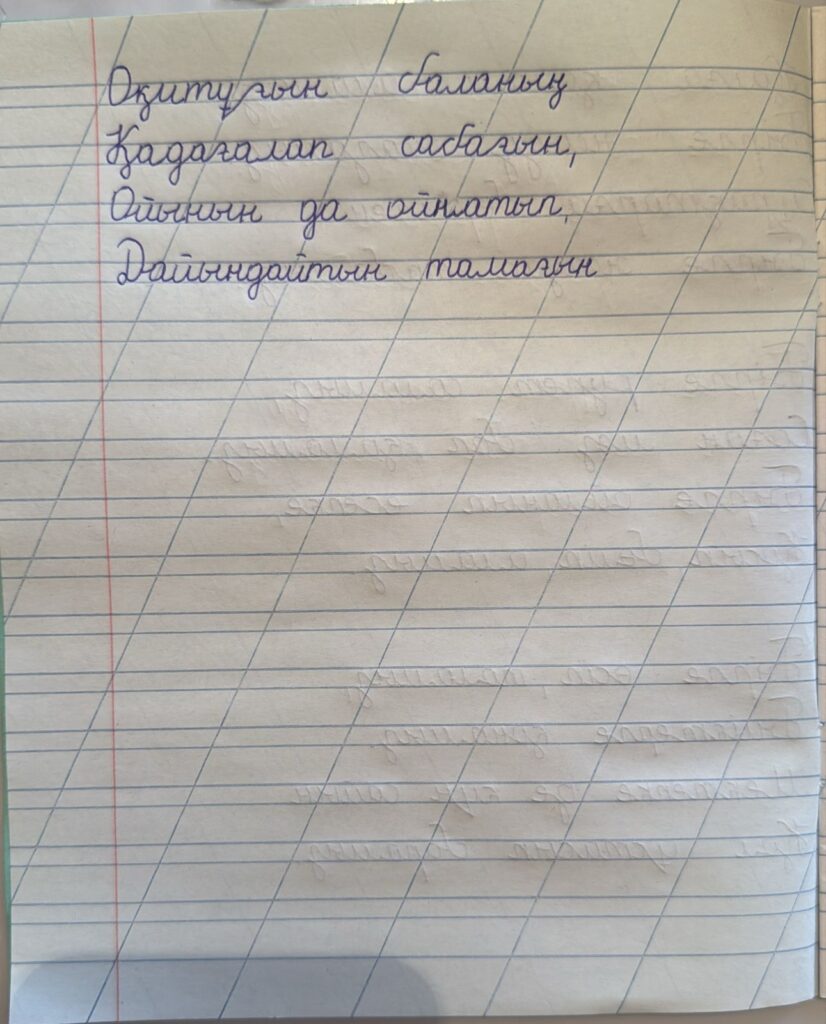 Оқитұғын баланың
Қадағалап сабағын,
Ойынын да ойнатып,
Дайындайтын тамағын